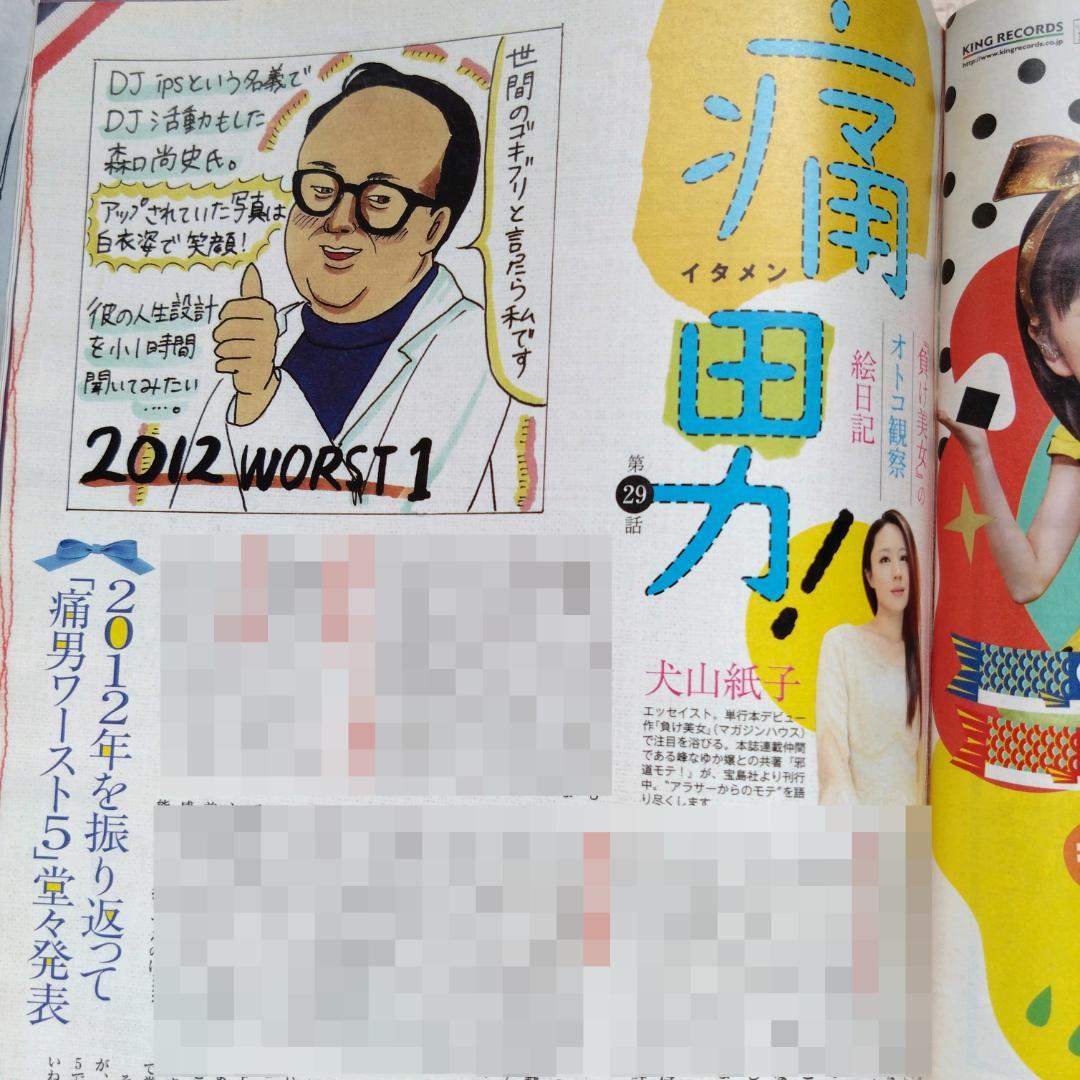 DJ ipsという名義で
DJ活動もした
森口尚史氏。
アップされていた写真は
白衣姿で笑顔!
彼の人生設計
を小1時間
聞いてみたい
....。
世間のゴキブリと言ったら私です
2012 WORST 1
痛男力!
イタメン
『負け美女』の
オトコ観察
絵日記
第
29
話
犬山紙子
エッセイスト。単行本デビュー
作『負け美女』(マガジンハウス)
で注目を浴びる。本誌連載仲間
である峰なゆか嬢との共著『邪
道モテ!』が、宝島社より刊行
中。“アラサーからのモテ”を語
り尽くします
2012年を振り返って
「痛男ワースト5」堂々発表
KING RECORDS
http://www.kingrecords.co.jp